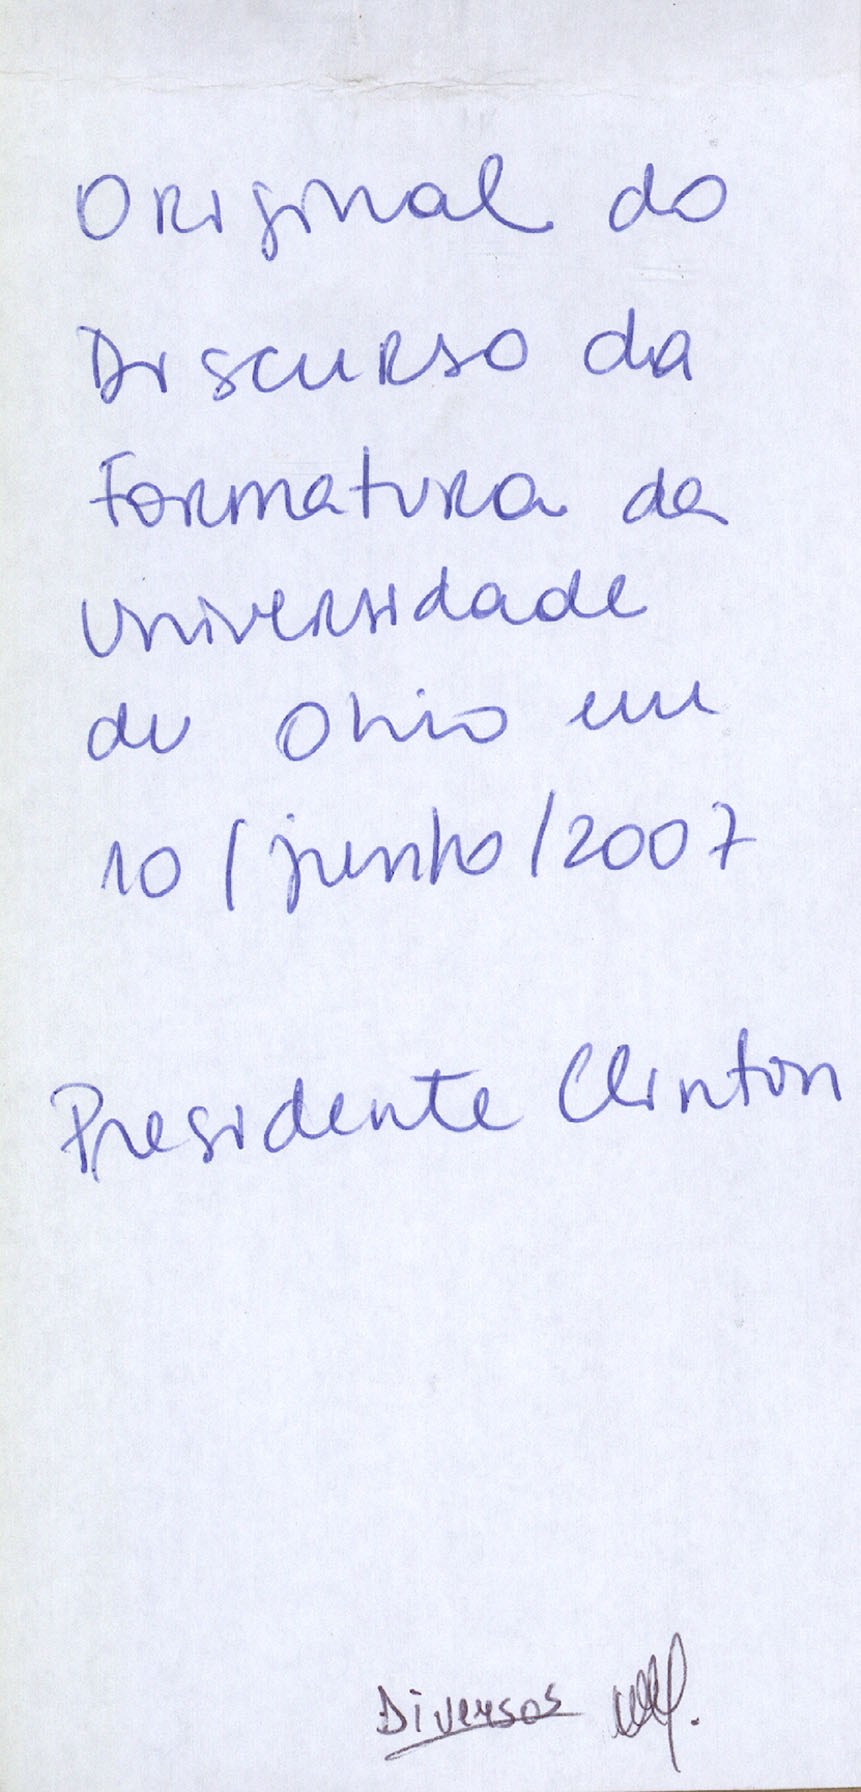 Original do
Discurso da
Formatura da
Universidade
de Ohio em
10/junho/2007
Presidente Clinton
Diversos